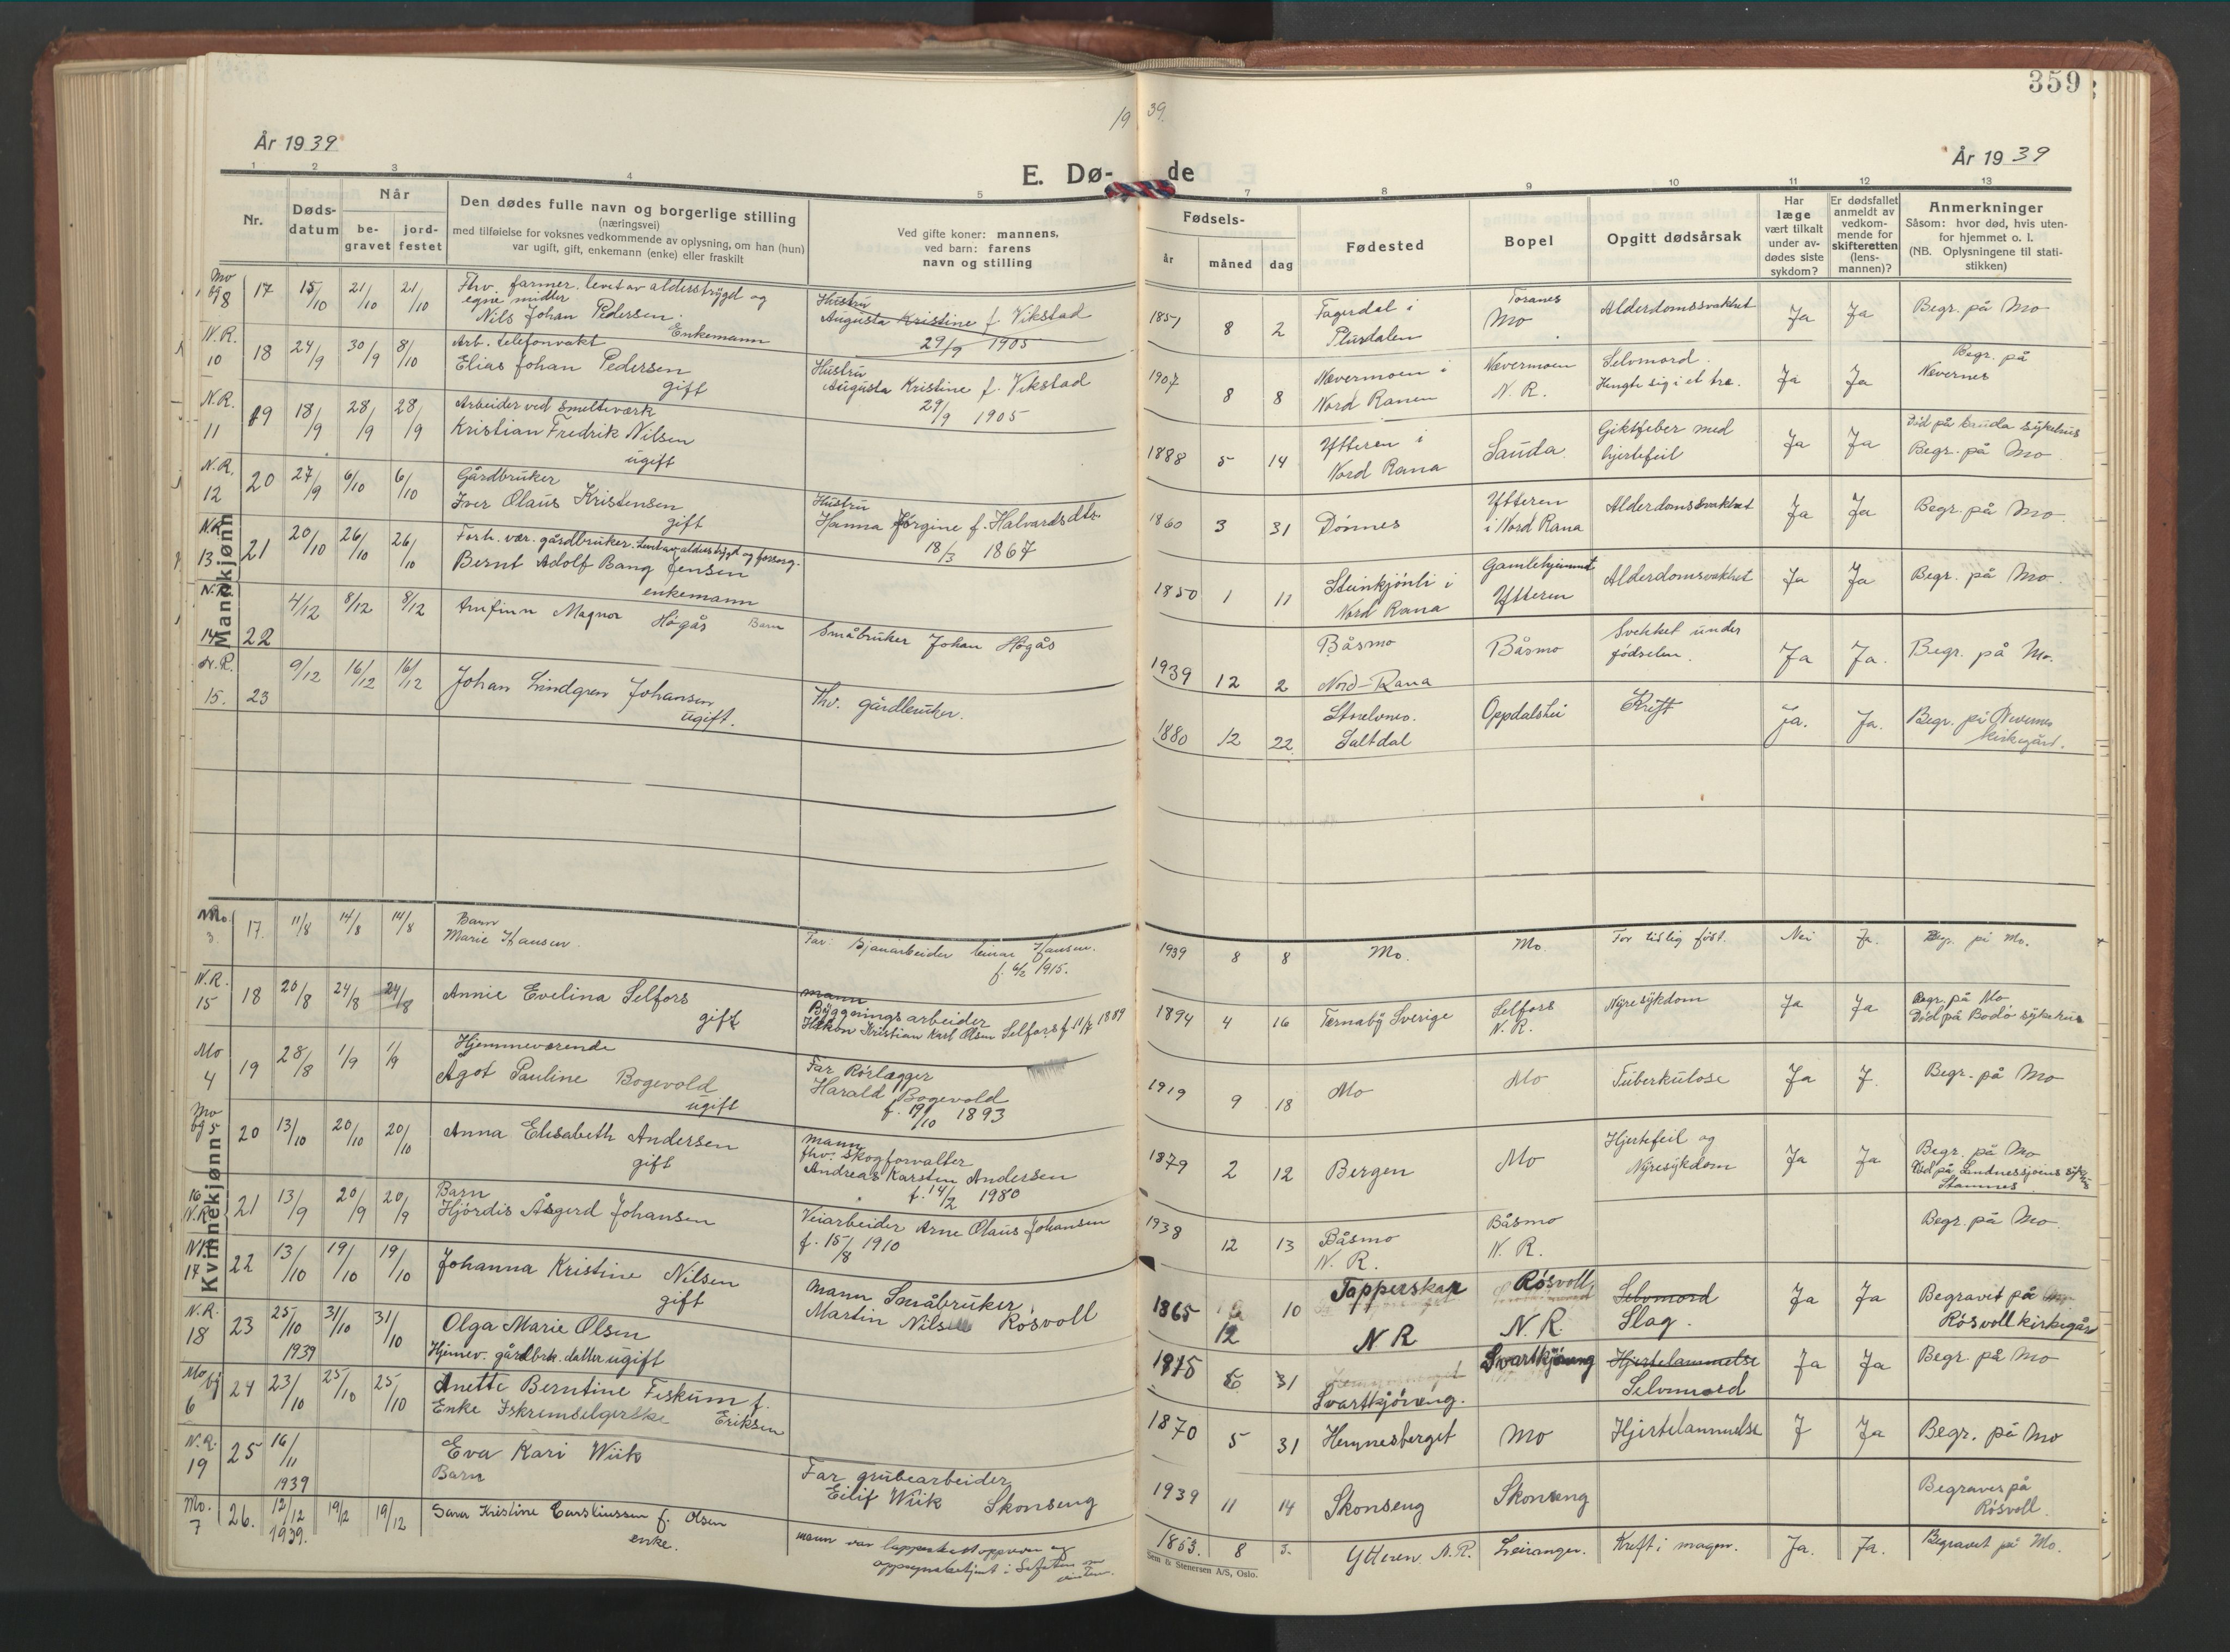 359
19 39.
År 1939
År 1939
E. Dø- de
1 2 3 4 5 7 8 9 10 11 12 13
Nr.
Døds-
datum
Når
be-
gravet
jord-
festet
Den dødes fulle navn og borgerlige stilling
(næringsvei)
med tilføielse for voksnes vedkommende av oplysning, om han (hun)
var ugift, gift, enkemann (enke) eller fraskilt
Ved gifte koner: mannens,
ved barn: farens
navn og stilling
Fødsels-
år måned dag
Fødested
Bopel
Opgitt dødsårsak
Har
læge
vært tilkalt
under av-
dødes siste
sykdom?
Er dødsfallet
anmeldt av
vedkom-
mende for
skifteretten
(lens-
mannen)?
Anmerkninger
Såsom: hvor død, hvis uten-
for hjemmet o. l.
(NB. Oplysningene til stati-
stikken)
Mannkjønn
Mo
bg 8 17 15/10 21/10 21/10
Fhv. farmer. levet av alderstrygd og
egne midler
Nils Johan Pedersen.
Enkemann
Hustru
Augusta Kristine f. Vikstad
29/9 1905
1851 8 2
Fagerdal i
Plurdalen
Toranes
Mo
Alderdomssvakhet
Ja Ja
Begr. på Mo
N.R.
10 18 24/9 30/9 8/10
Arb. telefonvakt
Elias Johan Pedersen
gift
Hustru
Augusta Kristine f. Vikstad
29/9 1905
1907 8 8
Nævermoen i
Nord Ranen
Nævermoen
N. R.
Selvmord.
Hengte sig i et tre.
Ja Ja
Begr. på
Nævernes
N.R.
11 19 18/9 28/9 28/9
Arbeider ved Smelteværk
Kristian Fredrik Nilsen
ugift
1888 5 14
Ytteren i
Nord Rana
Sauda
Giktfeber med
hjertefeil
Ja Ja
Død på Sauda sykehus
Begr. på Mo
N.R.
12 20 27/9 6/10 6/10
Gårdbruker
Iver Olaus Kristensen
gift
Hustru
Hanna Jørgine f. Halvardsdtr.
18/3 1867
1860 3 31
Dønnes
Ytteren
i Nord Rana
Alderdomssvakhet
Ja Ja
Begr. på Mo.
N.R.
13 21 20/10 26/10 26/10
Forh. vær. gårdbruker. Levet av alderstrygd og forsorg.
Bernt Adolf Bang Jensen
enkemann
1850 1 11
Steinkjønli i
Nord Rana
Gamlehjemmet
Ytteren
Alderdomsvakhet
Ja Ja
Begr. på Mo.
N.R.
14 22 4/12 8/12 8/12
Arnfinn Magnor Høgås Barn
Småbruker Johan Høgås
1939 12 2
Båsmo
Nord-Rana
Båsmo
Svekket under
fødselen.
Ja Ja.
Begr. på Mo.
N.R.
15. 23 9/12 16/12 16/12
Johan Lindgren Johansen
ugift.
Fhv. gårdbruker.
1880 12 22
Saltdal
Oppdalshei
Kreft
Ja. Ja.
Begr. på Nevernes
kirkegård.
Kvinnekjønn
Mo.
3. 17. 11/8 14/8 14/8
Barn
Marie Hansen.
Far: Einar Hansen.
f. 6/2 1915.
1939 8 8
Mo. Mo.
For tidlig født.
Nei Ja.
Begr. på Mo.
N.R.
15 18 20/8 24/8 24/8
Annie Evelina Selfors
gift
mann
Byggeringsarbeider
Håkon Kristian Karl Olsen Selfors f. 11/7 1889
1894 4 16
Tærnaby Sverige
Selfors
N.R.
Nyresykdom
Ja Ja
Begr. på Mo
Død på Bodø sykehus
Mo
4 19 28/8 1/9 1/9
Hjemmeværende
Agot Pauline Bogevold
ugift
Far Rørlægger
Harald Bogevold
f. 19/10 1893
1919 9 18
Mo Mo
Tuberkulose
Ja J.
Begr. på Mo
Mo
bg 5 20 13/10 20/10 20/10
Anna Elisabeth Andersen
gift
mann
fhv. skogforvalter
Andreas Karsten Andersen
f. 14/2 1980
1879 2 12
Bergen Mo
Hjertefeil og
Nyresykdom
Ja Ja
Begr. på Mo
Død på Sandnessjøens sykehus
Stamnes
16
N.R. 21 13/9 20/9 20/9
Barn
Hjördis Åsgerd Johansen
Veiarbeider Arne Olaus Johansen
f. 15/8 1910
1938 12 13
Båsmo
N. R.
Båsmo
N. R.
Begr. på Mo.
N.R.
17 22 13/10 19/10 19/10
Johanna Kristine Nilsen
gift
Mann Småbruker
Martin Nilsen Røsvoll
1865 12 10
Tapperskar
N R
Røsvoll
N. R.
Selvmord
Slag.
Ja Ja
Begravet på
Røsvoll kirkegård
N.R.
18 23 25/10 1939 31/10 31/10
Olga Marie Olsen
Hjemev. gårdbrk. datter ugift
1875 6 31
Svartkjønneng.
Svartkjønneng
Hjertelammelse
Selvmord
Ja Ja
Begr. på Mo
Mo bg
6 24 23/10 25/10 25/10
Anette Berntine Fiskum f.
Enke Iskremselgerske Eriksen
1870 5 31
Hemnesberget Mo
Hjertelammelse
J Ja
Begr. på Mo
N.R.
19 25 16/11 1939
Eva Kari Wiik
Barn
Far grubearbeider
Eilif Wiik Skonseng
1939 11 14
Skonseng Skonseng
Begraves på
Røsvoll.
Mo.
7 26. 12/12 1939. 19/2 19/12
Sara Kristine Carstiussen f. Olsen
enke.
mann var
1853. 8 3.
Ytteren N.R. Leiranger.
Kreft i magen.
Ja. Ja.
Begravet på Mo.
Sem & Stenersen A/S, Oslo.